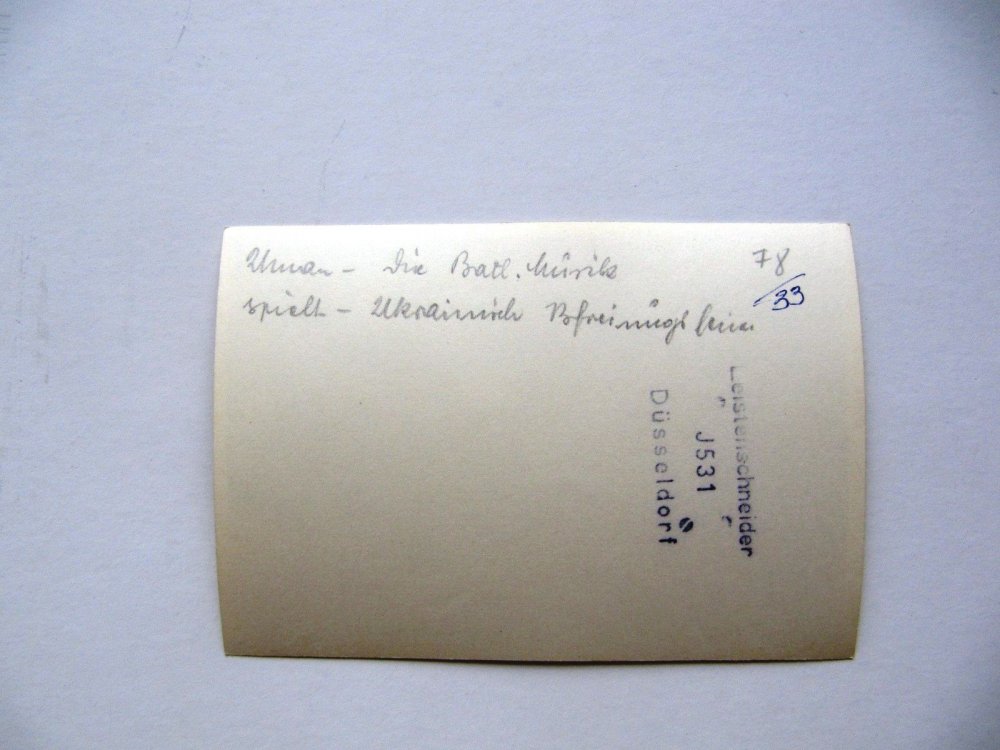 Uman - Die Batl. Musik 78
spielt - Ukrainisch Bfreiungsfeier 33
Leistenschneider
J531
Düsseldorf